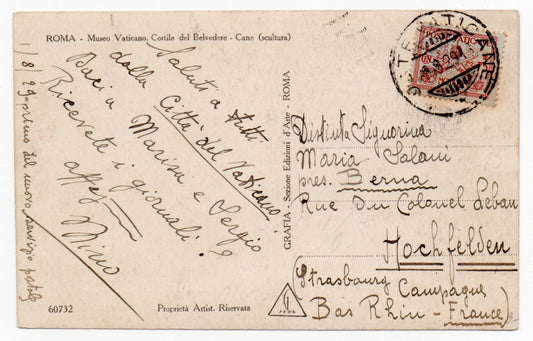 ROMA - Museo Vaticano. Cortile del Belvedere - Cane (scultura)
1/8/29 - primo del nuovo servizio postale
Saluti a tutti
dalla Città del Vaticano!
Baci a Marisa e Sergio
Ricevete i giornali?
affez
Nino
60732
Proprietà Artist. Riservata
GRAFIA - Sezione Edizioni d'Arte - ROMA
POSTE VATICANE
Distinta Signorina
Maria Salani
pres. Berna
Rue Du Colonel Leban
Hochfelden
(Strasbourg Campagne
Bas Rhin - France)